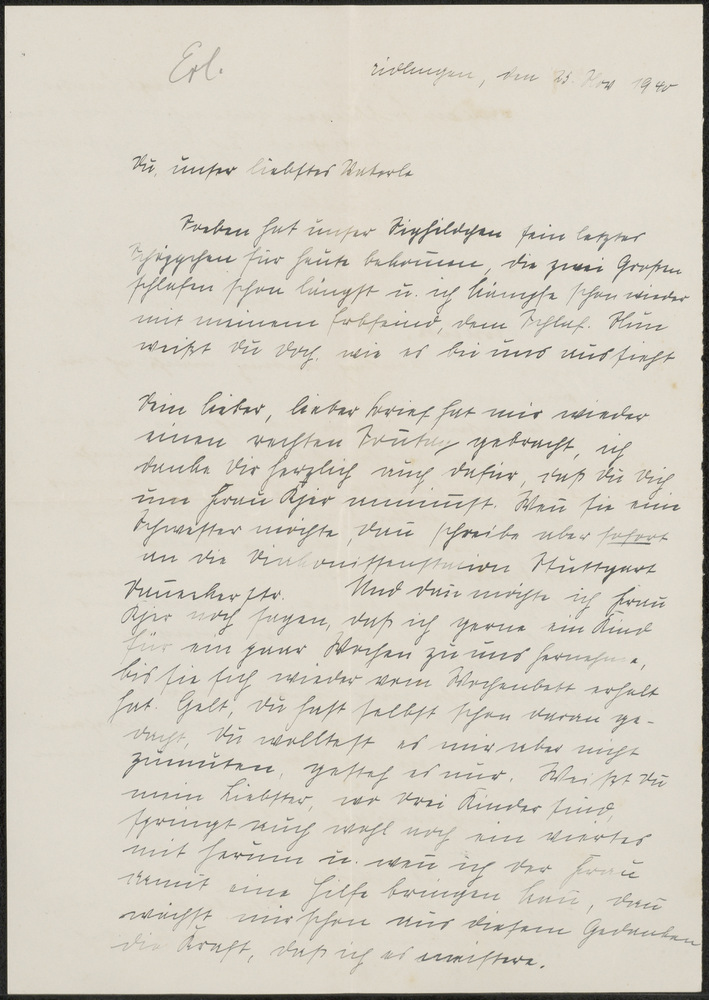 Erl.
Eidlingen, den 23 Nov 1940
Du, unser liebstes Vaterle
Soeben hat unser Sighildchen sein letztes
Schöppchen für heute bekommen, die zwei Großen
schlafen schon längst u. ich kämpfe schon wieder
mit meinem Erbfeind, dem Schlaf. Nun
weißt Du doch, wie es bei uns aussieht
Dein lieber, lieber Brief hat mir wieder
einen rechten Sonntag gebracht, ich
danke Dir herzlich auch dafür, daß Du Dich
um Frau annimmst. Wenn sie eine
Schwester möchte, dann schreibe aber sofort
an die Diakonissenstation Stuttgart
Danneckerstr. Und dann möchte ich Frau
noch sagen, daß ich gerne ein Kind
für ein paar Wochen zu uns hernehme,
bis sie sich wieder vom Wochenbett erholt
hat. Gelt, Du hast selbst schon daran ge-
dacht, Du wolltest es mir aber nicht
zumuten, gesteh es nur. Weißt Du
mein Liebster, wo drei Kinder sind,
springt auch wohl noch ein viertes
mit herum u. wenn ich der Frau
damit eine Hilfe bringen kann, dann
wächst mir schon aus diesem Gedanken
die Kraft, daß ich es meistere.